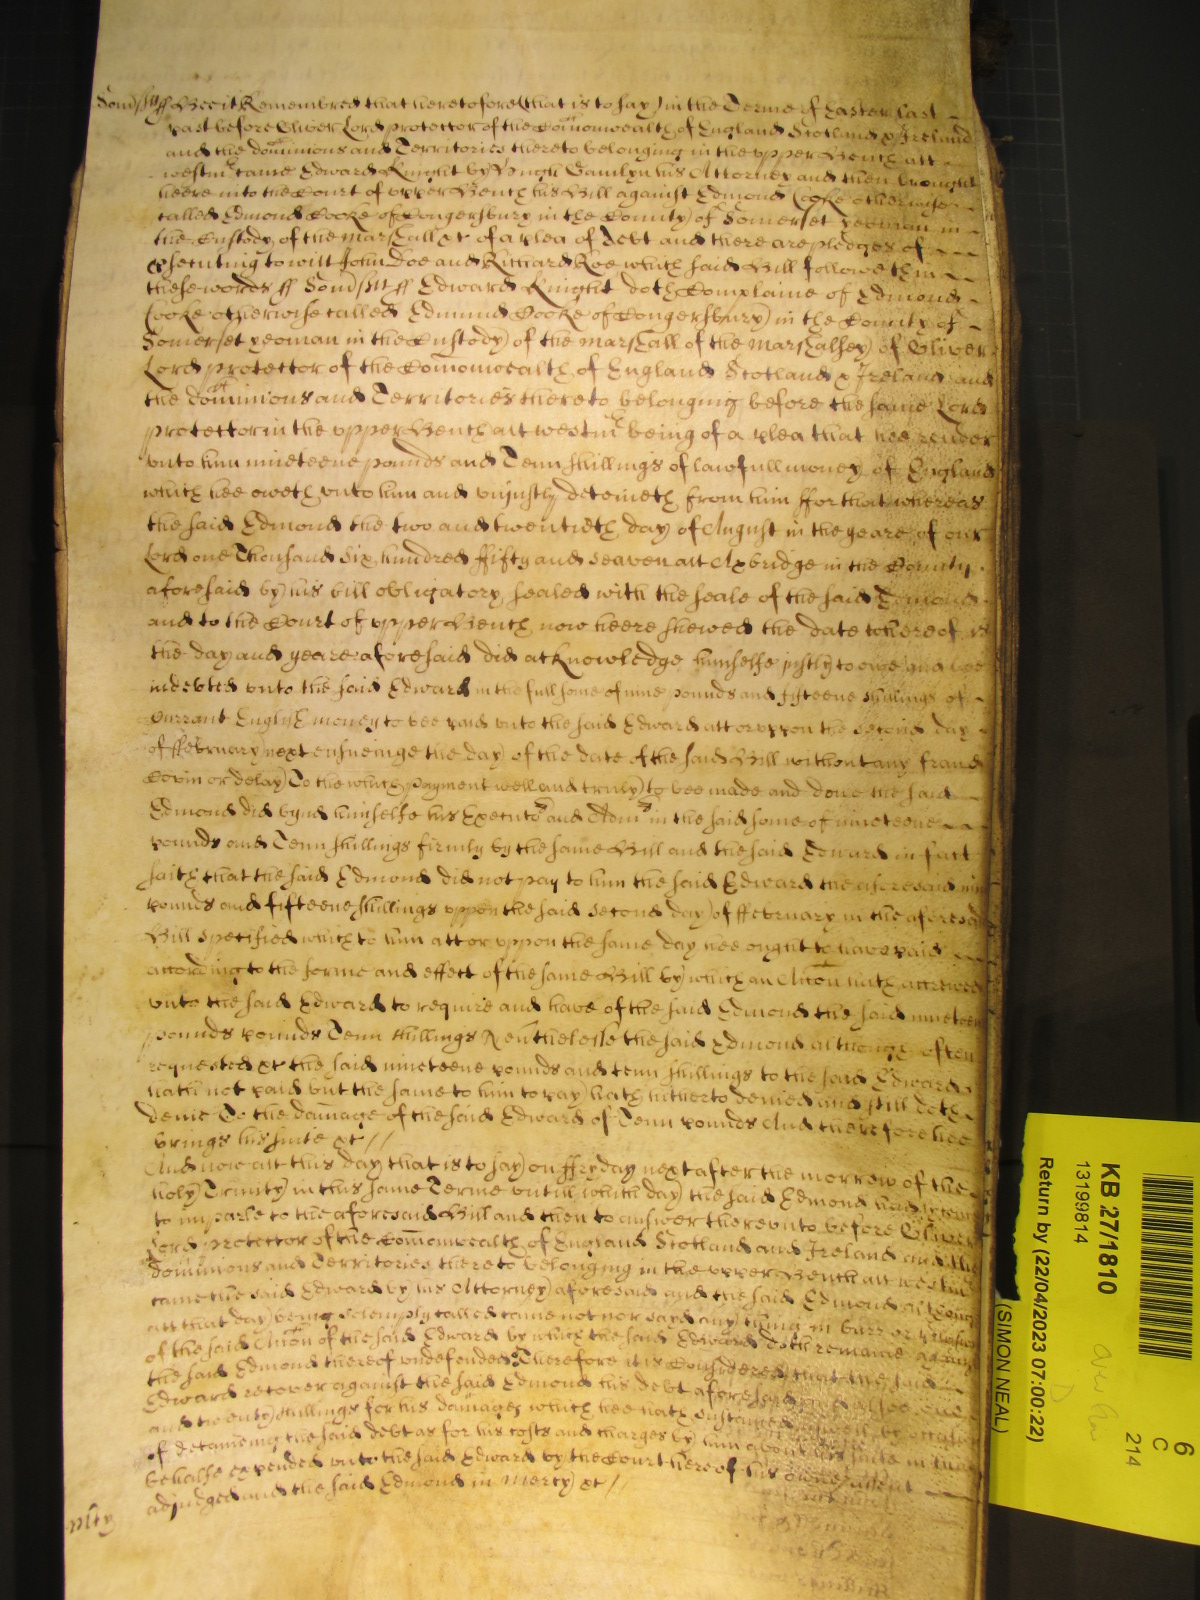 Somsett ss Bee it Remembred that heretofore (that is to say) in the Terme of Easter last
past before Oliver Lord protector of the Com̄onwealth of England Scotland & Ireland
and the dom̄inions and Territories thereto belonging in the upper Bench att
westmr came Edward Knight by Hugh his Attorney and then brought
heere into the Court of upper Bench his Bill against Edmond Cooke otherwise
called Edmond Cooke of Congersbury in the County of Somerset yeoman in
the Custody of the marshall &c of a plea of debt and there are pledges of
prsecuting to witt John Doe and Richard Roe which said Bill followeth in
these words ss Somsett ss Edward Knight doth Complaine of Edmond
Cooke otherwise called Edmund Cooke of Congersbury in the County of
Somerset yeoman in the Custody of the marshall of the marshalsey of Oliver
Lord protector of the Com̄onwealth of England Scotland & Ireland and
the dom̄inions and Territories thereto belonging before the same Lord
protector in the upper Bench att westmr being of a plea that hee render
unto him nineteene pounds and Tenn shillings of lawfull money of England
which hee oweth unto him and unjustly deteineth from him ffor that whereas
the said Edmond the two and twentieth day of August in the yeare of our
Lord one Thousand Six hundred ffifty and Seaven att Axbridge in the County
aforesaid by his bill obligatory sealed with the seale of the said Edmond
and to the Court of upper Bench now heere shewed the date whereof is
the day and yeare aforesaid did acknowledge himselfe justly to owe and bee
indebted unto the said Edward in the full some of nine pounds and fifteene shillings of
Currant English money to bee paid unto the said Edward att or uppon the second day
of ffebruary next ensueinge the day of the date of the said Bill without any fraud
Covin or delay To the which payment well and truly to bee made and done the said
Edmond did bynd himselfe his Executors and Admrs in the said some of nineteene
pounds and Tenn shillings firmly by the same Bill and the said Edward in fact
saith that the said Edmond did not pay to him the said Edward the aforesaid nine
pounds and fifteene shillings uppon the said second day of ffebruary in the aforesaid
Bill specified which to him att or uppon the same day hee ought to have paid
according to the forme and effect of the same Bill by which an Acc̄on hath accrewed
unto the said Edward to require and have of the said Edmond the said nineteen
pounds pounds Tenn shillings Neūthelesse the said Edmond although often
requested &c the said nineteene pounds and tenn shillings to the said Edward
hath not paid but the same to him to pay hath hitherto denied and still doth
denie To the damage of the said Edward of Tenn pounds And therefore hee
brings his suite &c //
And now att this day that is to say on ffryday next after the morrow of the
holy Trinity in this same Terme untill which day the said Edmond had licence
to imparle to the aforesaid Bill and then to answer thereunto before Oliver
Lord protector of the Com̄onwealth of England Scotland and Ireland and the
dominions and Territories thereto belonging in the upper Bench att westmr
came the said Edward by his Attorney aforesaid and the said Edmond although
att that day being solemply called came not nor sayd any thing in barr or
of the said Acc̄on of the said Edward by which the said Edward doth remaine against
the said Edmond thereof undefended Therefore it is Considered that the said
Edward recover against the said Edmond his debt aforesaid and alsoe
and twenty shillings for his damages which hee hath sustained aswell by occasion
of deteineing the said debt as for his costs and charges by him about his suite in that
behalfe expended unto the said Edward by the Court here of his owne assent
adjudged and the said Edmond in mercy &c //
mcy
KB 27/1810
13199814
Return by (22/04/2023 07:00:22)
(SIMON NEAL)
6
C
214